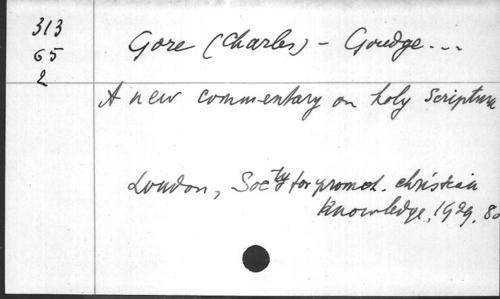 313
65
2
Gore (Charles) - Goudge...
A new commentary on holy Scripture
London, Socty for promot. christian
Knowledge, 1929, 8o